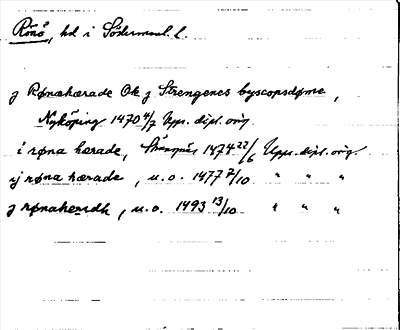 Rönö, hd i Södermanl. l.
J Rønahærade Ok J Strengenes byscopsdøme,
Nyköping 1470 4/7 Upps. dipl. orig.
i røna hærade, Strängnäs 1474 22/6 Upps. dipl. orig.
ij røna hærade, u.o. 1477 7/10 " " "
J rønaheradh, u.o. 1493 13/10 " " "